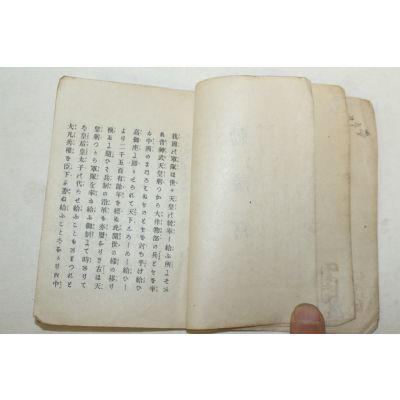 我國の軍隊は世々天皇の統率し給ふ所にそある
昔神武天皇躬つから大伴物部の兵ともを率ゐ
中國のまつろはぬものともを討ち平け給ひ
高御座に即かせられて天下しろしめし給ひし
より二千五百有餘年を經ぬ此間世の樣の移り
換るに隨ひて兵制の沿革も亦屢なりき古は天
皇躬つから軍隊を率ゐ給ふ御制にて時ありて
は皇后皇太子の代らせ給ふこともありつれと
大凡兵權を臣下に委ね給ふことはなかりき中